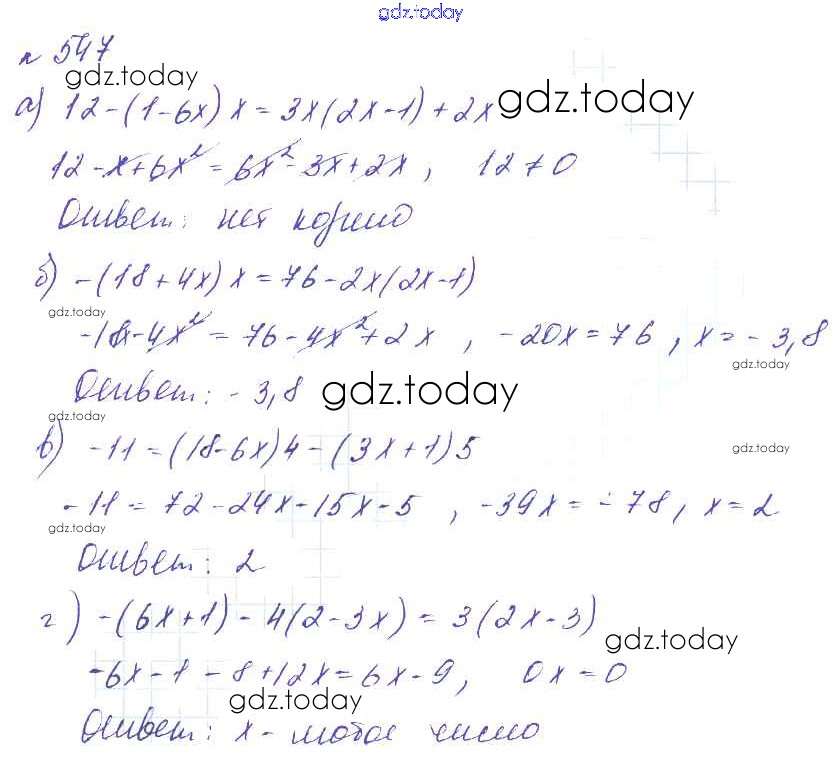 gdz.today
№ 547
gdz.today
а) 12-(1-6x)x = 3x(2x-1)+2x gdz.today
12-x+6x² = 6x²-3x+2x, 12≠0
Ответ: нет корней
б) -(18+4x)x = 76-2x(2x-1)
gdz.today
-18x-4x² = 76-4x²+2x, -20x=76, x=-3,8
gdz.today
Ответ: -3,8 gdz.today
gdz.today
в) -11=(18-6x)4-(3x+1)5
gdz.today
-11=72-24x-15x-5, -39x=-78, x=2
gdz.today
Ответ: 2
г) -(6x+1)-4(2-3x)=3(2x-3)
gdz.today
-6x-1-8+12x=6x-9, 0x=0
gdz.today
Ответ: x- любое число